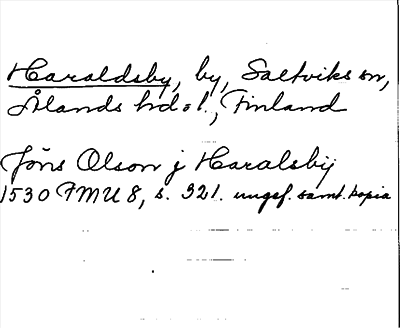 Haraldsby, by, Saltviks sn,
Ålands hd o l., Finland
Jöns Olson j Haralsbÿ
1530 FMU 8, s. 321. ungef. samt. kopia